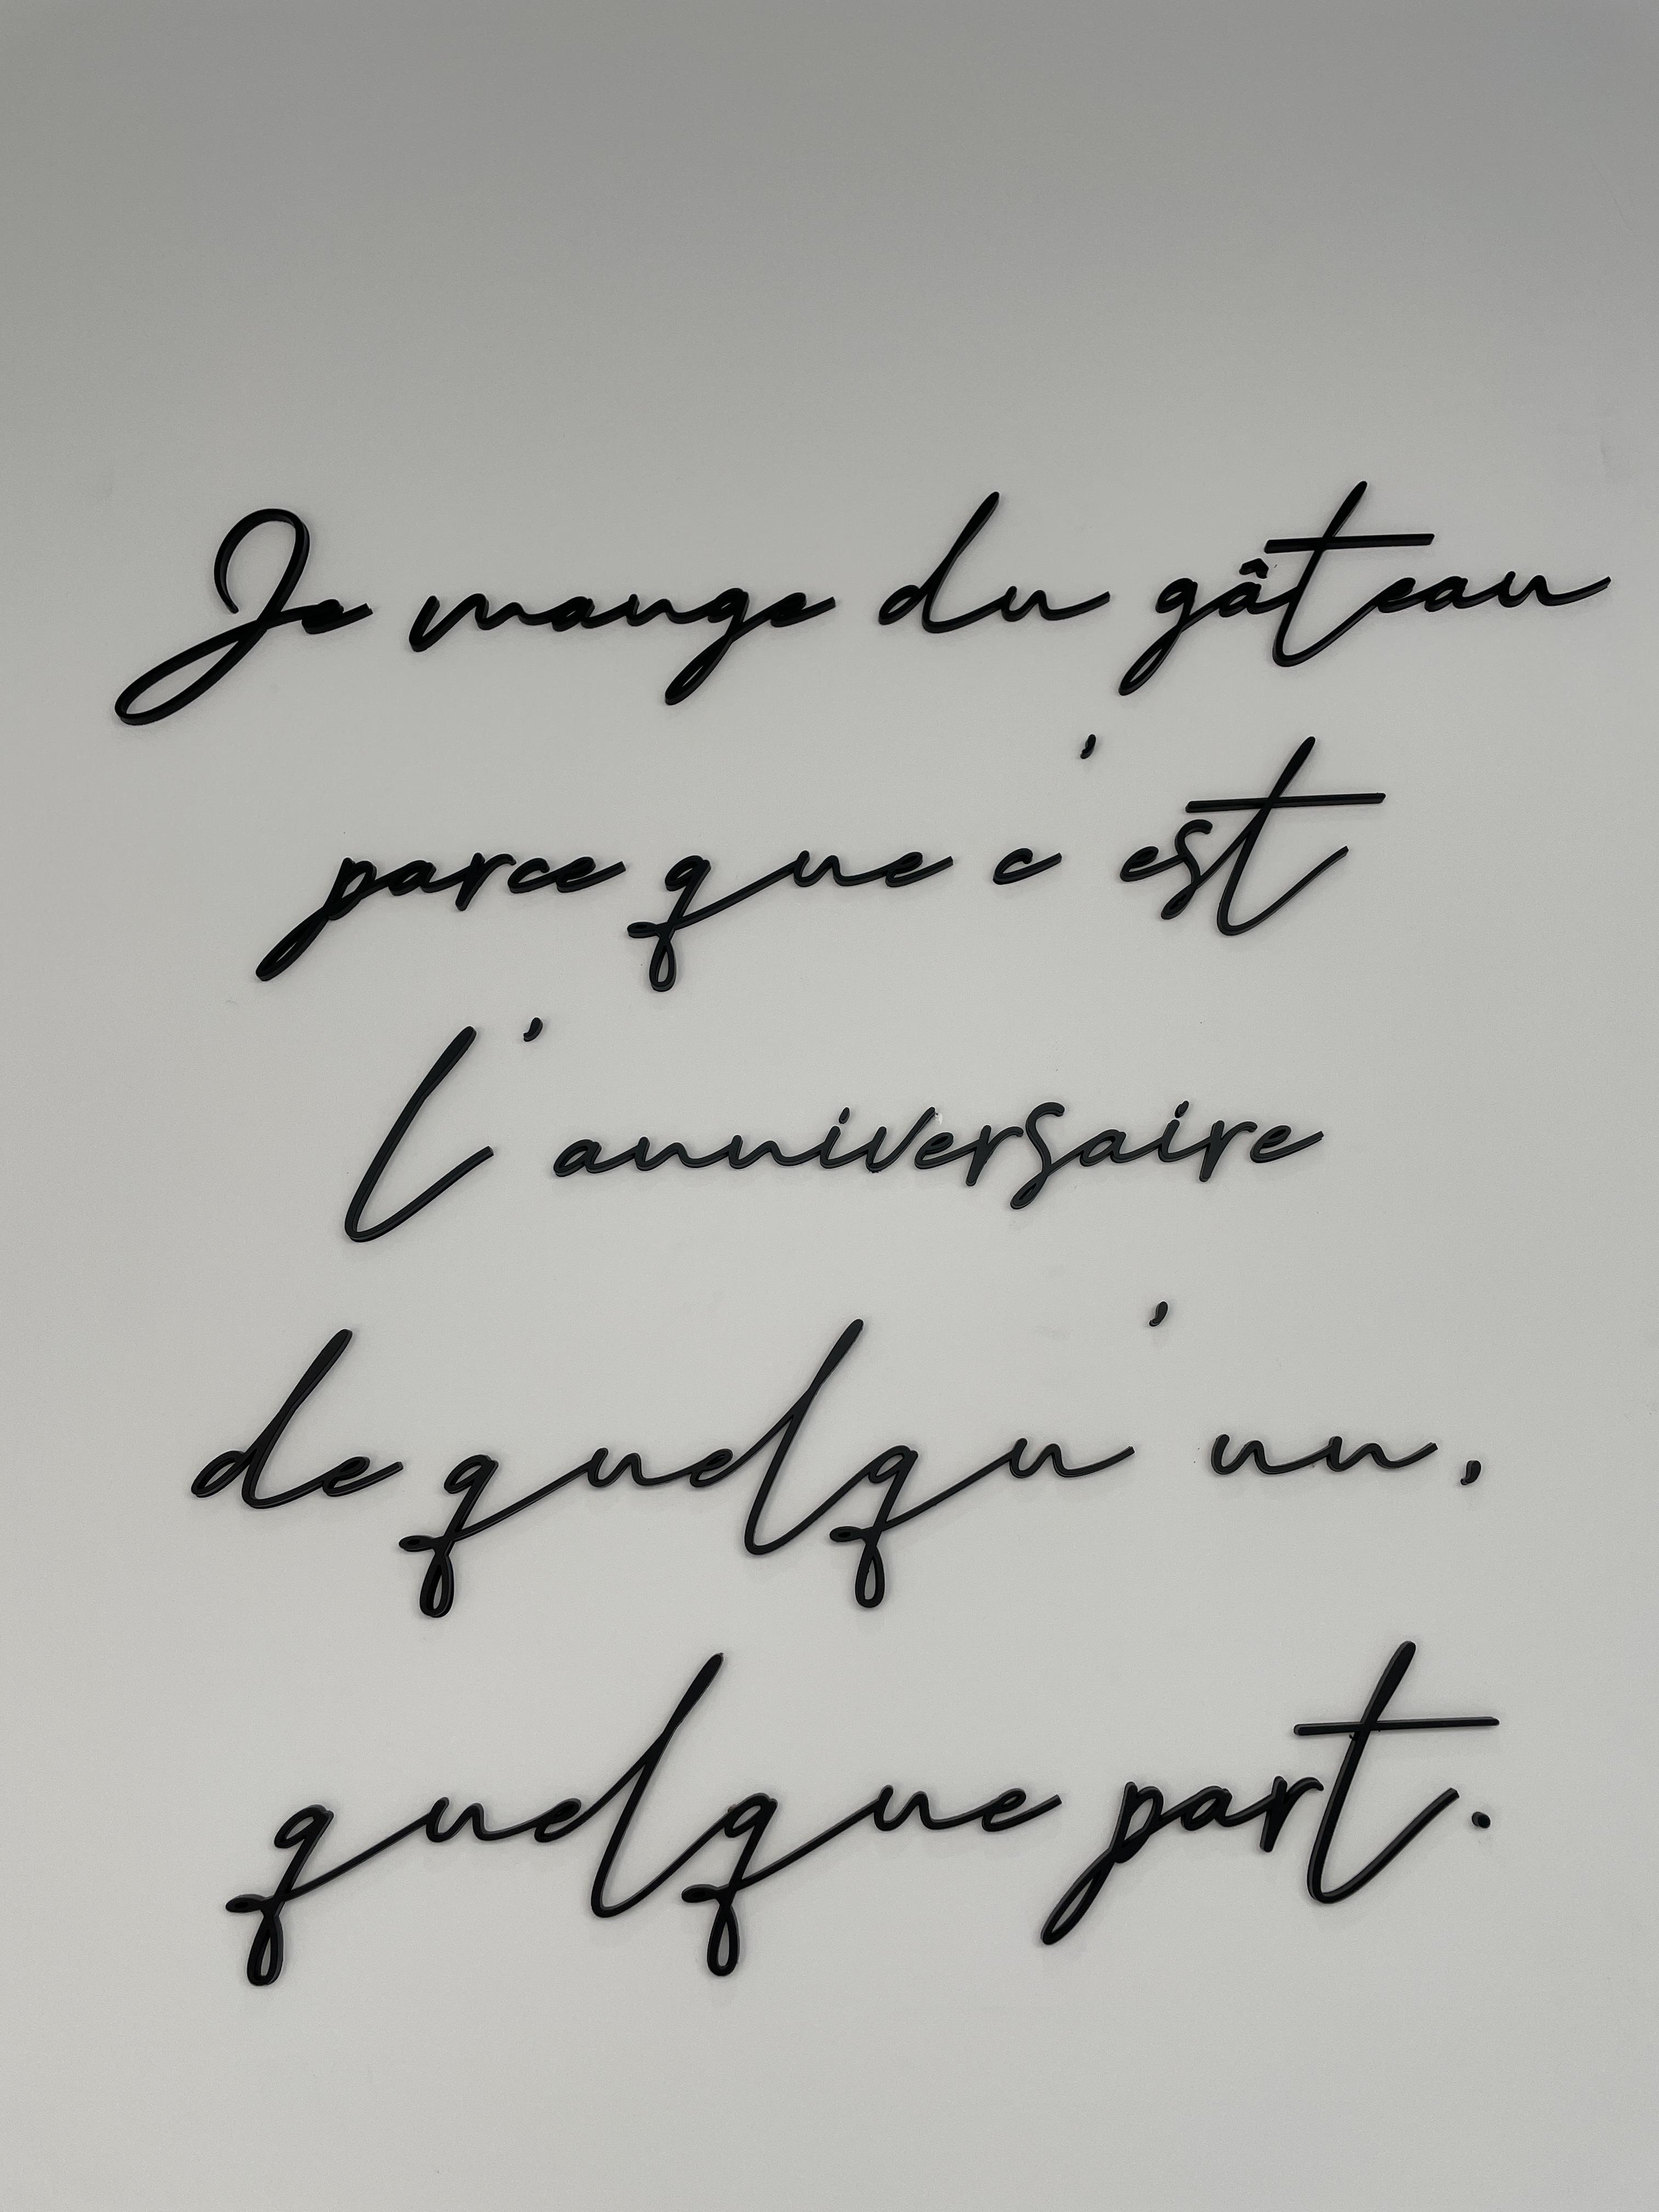 Je mange du gâteau
parce que c'est
l'anniversaire
de quelqu'un,
quelque part.